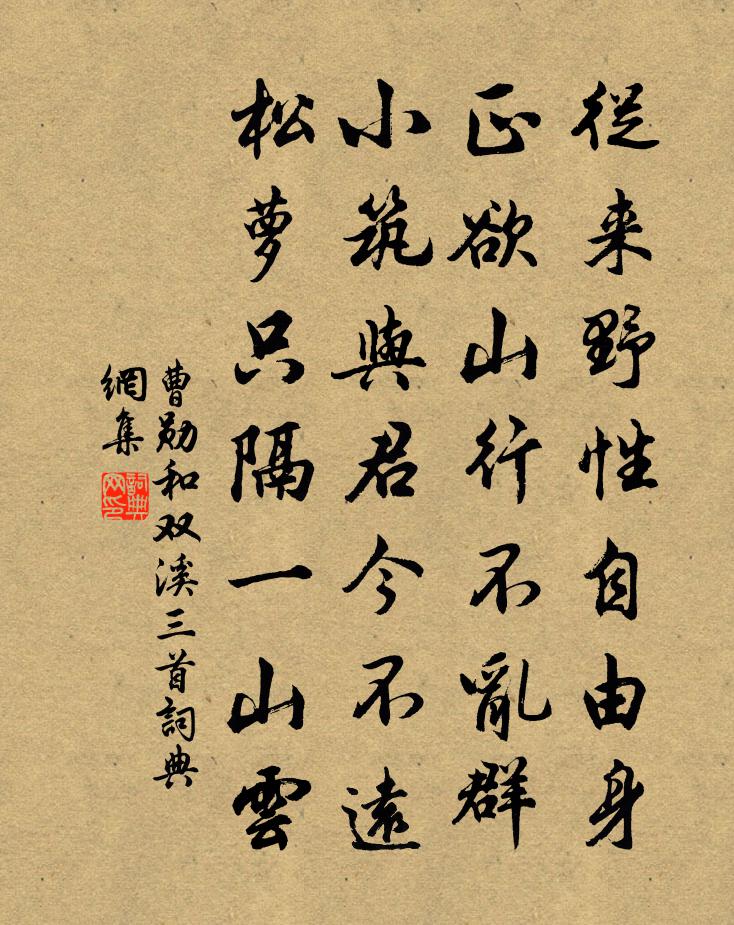 從来野性自由身
正欲山行不亂群
小筑與君今不遠
松萝只隔一山雲
曹勋和双溪三首詞典
網集
詞典
网印